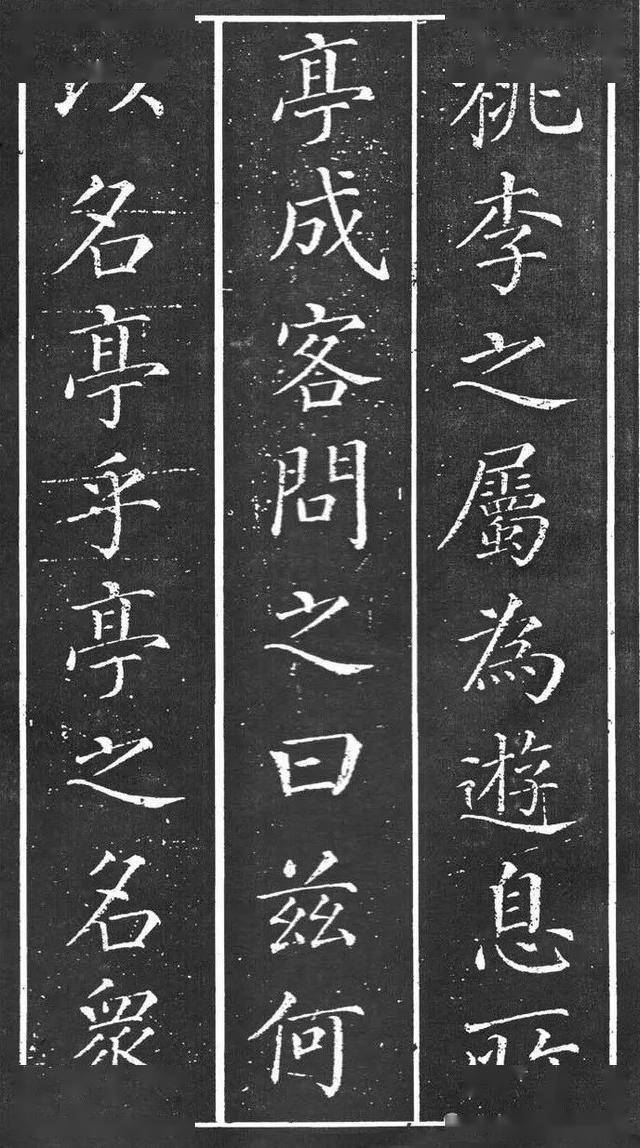 桃李之屬為遊息所
亭成客問之曰茲何
以名亭乎亭之名眾